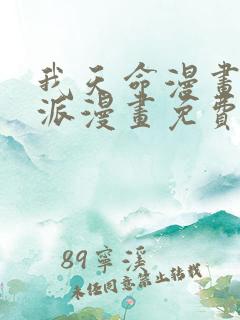 我天命漫畫
派漫畫免費
89寧溪
未经同意禁止转载